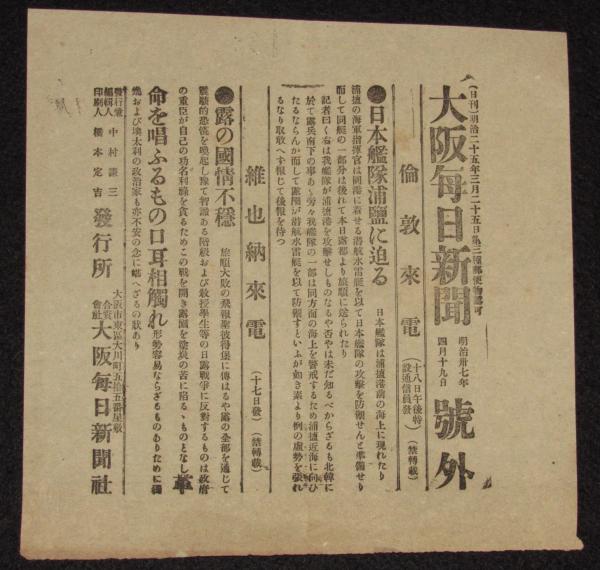 (日刊)明治二十五年三月二十五日第三種郵便物認可
大阪毎日新聞
明治卅七年
四月十九日
號外
倫敦來電
(十八日午後特設通信員發)
(禁轉載)
●日本艦隊浦鹽に迫る
日本艦隊は浦鹽港前の海上に現れたり
浦鹽の海軍指揮官は同港に着せる潜航水雷艇を以て日本艦隊の攻撃を防禦せんと準備せり
而して同艇の一部分は後れて本日露都より旅順に送られたり
記者曰く右は我艦隊が浦鹽港を攻撃せしものなるや否やは未だ知るべからざるも北韓に
於て露兵南下の事あり旁々我艦隊の一部は同方面の海上を警戒するため浦鹽近海に向ひ
たるならんか而して露國が潜航水雷艇を以て防禦すといふが如き素より例の虚勢を張れ
るなり取敢へず報じて後報を待つ
維也納來電
(十七日發)
(禁轉載)
●露の國情不穩
旅順大敗の飛報聖彼得堡に傳はるや露の全部を通じて
震駭的恐慌を喚起し豫て智識ある階級および教授學生等の日露戰爭に反對するものは政府
の重臣が自己の功名利祿を貪るためこの戰を開き露國を塗炭の苦に陷るゝものとなし革
命を唱ふるもの口耳相觸れ形勢容易ならざるものありために獨
逸および墺太利の政治家も亦不安の念に堪へざるの狀あり
發行兼編輯人 中村謙三
印刷人 橋本定吉
發行所
大阪市東區大川町五拾五番屋敷
合資會社大阪毎日新聞社